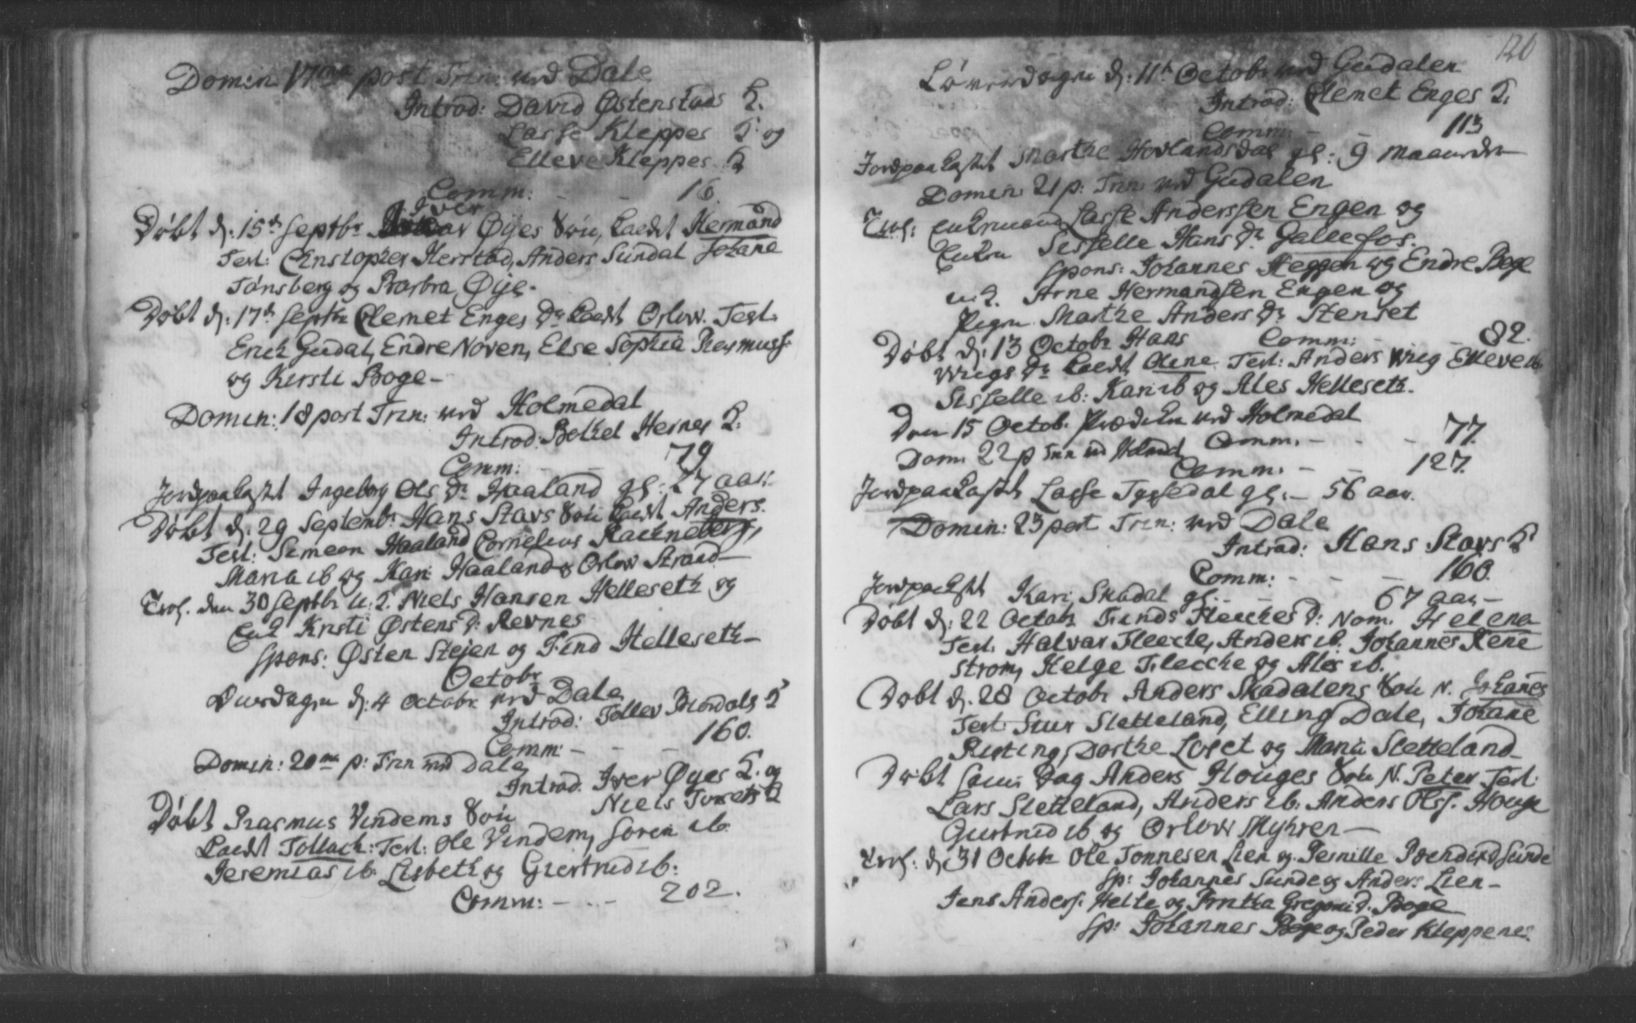 Domin 17me post Trin: ved Dale
Introd: David Østenstads K.
Lasse Kleppes K: og
Elleve Kleppes K
Comm: - - 16.
Iver
Døbt d: 15de Septbr Øyes Søn, kaldt Hermand
Test: Christopher Herstad, Anders Sundal Johane
Tønsberg og Barbra Øye.
Døbt d: 17de Septbr Clemet Enges Dr kaldt Orlow. Test.
Erich Gudal, Endre Noven, Else Sophia Rasmuss:
og Kirsti Boge -
Domin: 18 post Trin: ved Holmedal
Introd: Bothel Hernes K.
Comm: - - 79
Jordpaakastet Ingebor Ols Dr Haaland gl: 27 aar.
Døbt d. 29 Septembr Hans Stavs Søn kaldt Anders.
Test: Simeon Haaland Cornelius Rachneberg,
Maria ib og Kari Haaland & Orlow Strand -
Trol. den 30 Septbr u: k. Niels Hansen Helleseth og
Enk Kristi Østens D. Revnes
Spons: Østen Steien og Find Helleseth -
Octobr
Onsdagen d: 4 Octobr ved Dale
Introd: Tollev Biordals K
Comm: - - - 160.
Domin: 20me p: Trin ved Dale
Introd. Iver Øyes K. og
Niels Tveits K
Døbt Rasmus Vindems Søn
kaldt Tollach: Test: Ole Vindem, Soren ib.
Jeremias ib. Lisbeth og Giertrud ib:
Comm: - - - 202.
120
Løverdagen d: 11te Octobr ved Gudalen
Introd: Clemet Enges K.
Comm: - - 113
Jordpaakastet Marthe Hovlandsdal gl: 9 Maaneder
Domin: 21 p: Trin ved Gudalen
Trol: Enkemand Lasse Anderssen Engen og
Enken Sisselle Hans Dr Gallefos.
Spons: Johannes Heggen og Endre Boge
u: k. Arne Hermandsen Engen og
Pigen Marthe Anders Dr Stenset
Comm: - - 82.
Døbt d: 13 Octobr Hans
Wiigs Dr kaldt Oline Test: Anders Wiig Elleve ib
Sisselle ib: Kari ib og Ales Helleseth.
Den 15 Octob. Prædiken ved Holmedal
Comm. - - - 77.
Dom: 22 p Trin ved Holmed
Comm. - - 127.
Jordpaakastet Lasse Tyssedal gl. - 56 aar.
Domin: 23 post Trin: ved Dale
Introd: Hans Stavs K
Comm: - - - 160.
Jordpaakastet Kari Skadal gl: - - 67 aar -
Døbt d: 22 Octobr Trends Fleeches D: Nom. Helena
Test. Halvar Fleeche, Anders ib. Johannes Rene
strom, Helge Fleeche og Ales ib.
Døbt d. 28 Octobr Anders Skadalens Søn N. Johanes
Test: Siur Sletteland, Elling Dale, Johane
Risting, Dorthe Loset og Maria Sletteland
Døbt samme Dag Anders Houges Søn N. Peter Test:
Lars Sletteland, Anders ib. Anders Olss. Houge
Giertrud ib og Orlow Myhren -
Trol: d: 31 Octobr Ole Tonnesen Lien og Pernille Sunde
Sp: Johannes Sunde og Anders Lien -
Jens Anders. Helle og Gregorii D. Boge
Sp: Johannes Boge og Peder Kleppenes